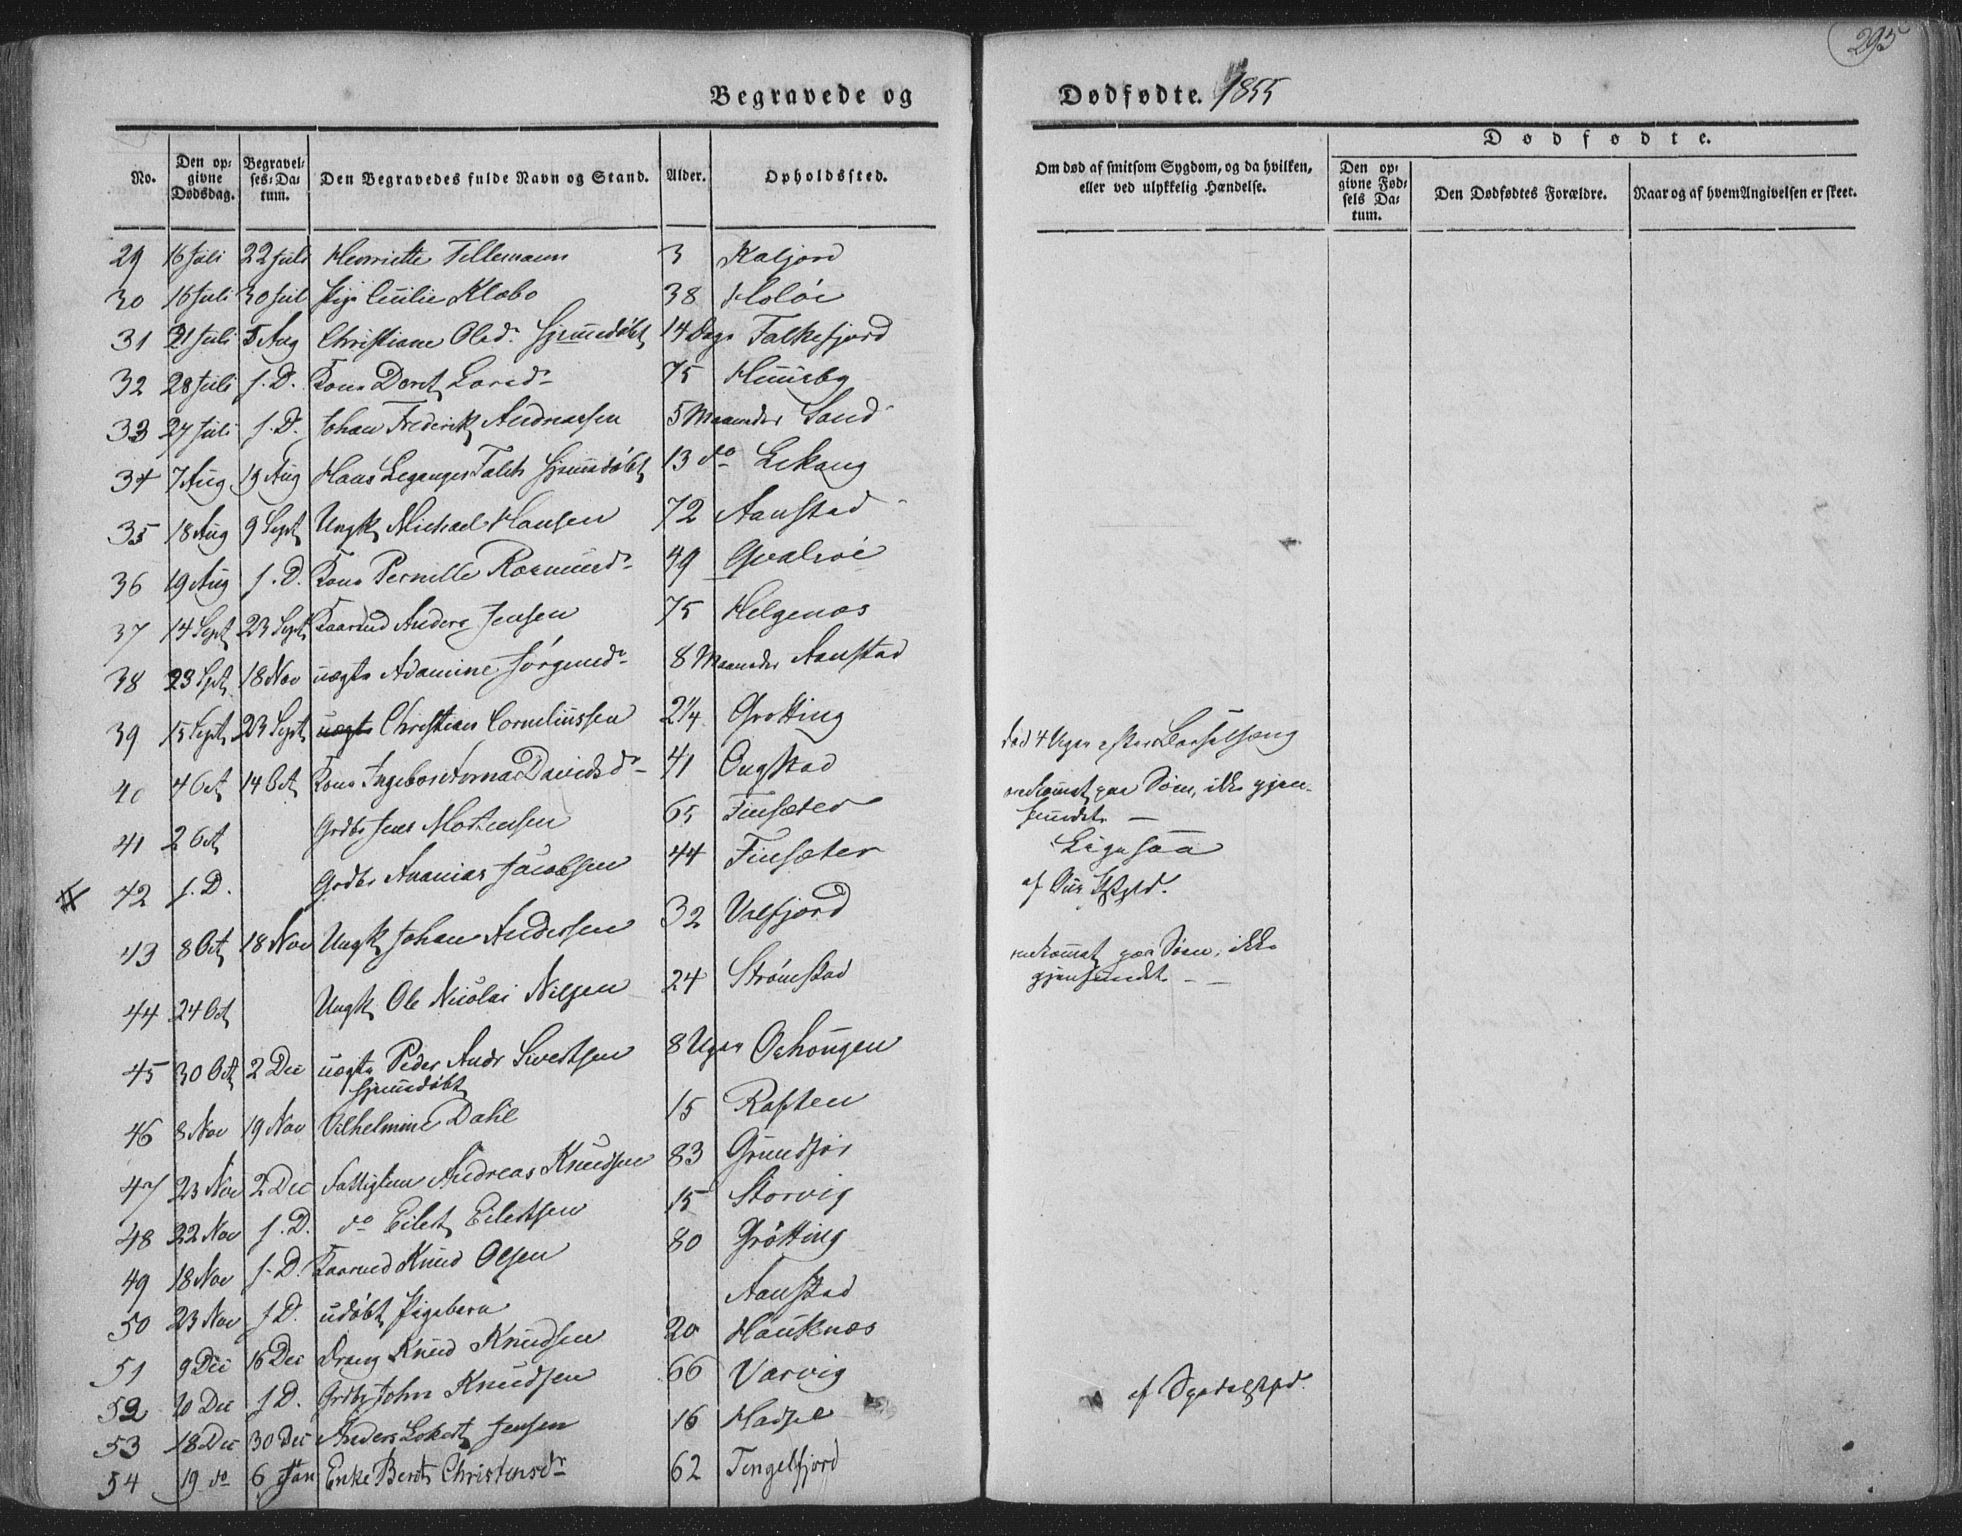 295
Begravede og Dødfødte. 1855
No. Den opgivne Dødsdag. Begravelses-Datum. Den Begravedes fulde Navn og Stand. Alder. Opholdssted.
Om død af smitsom Sygdom, og da hvilken, eller ved ulykkelig Hændelse.
Dødfødte.
Den opgivne Fødsels Datum. Den Dødfødtes Forældre. Naar og af hvem Angivelsen er skeet.
29 16 Juli 22 Juli Henriette Tellemann 3 Kaljord
30 16 Juli 30 Juli Pige Cecilie Klæbo 38 Holöe
31 21 Juli 5 Aug Christiane Olsd. hjemmedøbt 14 Dage Falkefjord
32 28 Juli s. D. Kone Doret Larsd. 75 Huusby
33 27 Juli s. D. Johan Frederik Andreassen 5 Maaneder Sand
34 7 Aug 19 Aug Hans Leganger Falch hjemmedøbt 13 do Lekang
35 18 Aug 9 Sept Ungk Michael Hansen 72 Aanstad
36 19 Aug s. D. Kone Pernille Rasmusd. 49 Qvalsöe
37 14 Sept 23 Sept Kaarmd Anders Jensen 75 Helgenæs
38 23 Spt 18 Nov uægte Adamine Jörgensd. 8 Maaneder Aanstad
39 15 Sept 23 Sept uægte Christian Corneliussen 2 1/4 Grotting
40 4 Oct 14 Oct Kone Ingebor Anna Davidsd. 41 Ongstad død 4 Uger efter Barselseng
41 2 Oct Grdbr Jens Mortensen 65 Finsæter omkommet paa Søen, ikke gjenfundet. —
42 s. D. Grdbr Ananias Jacobsen 44 Finsæter Ligesaa
43 8 Oct 18 Nov Ungk Johan Andersen 32 Valfjord af
44 24 Oct Ungk Ole Nicolai Nilsen 24 Strömstad omkommet paa Søen, ikke gjenfundet. —
45 30 Oct 2 Dec uægte Peder Andr Sivertsen hjemmedøbt 8 Uger Ochsungen
46 8 Nov 19 Nov Vilhelmine Dahl 15 Raften
47 23 Nov 2 Dec Fattiglem Andreas Knudsen 83 Grundför
48 22 Nov s. D. do Eilert Eilertsen 15 Storvig
49 18 Nov s. D. Kaarmd Knud Olsen 80 Grötting
50 23 Nov s. D. udøbt Pigebarn Aanstad
51 9 Dec 16 Dec Dreng Knud Knudsen 20 Hauknæs
52 10 Dec s. D. Grdbr John Knudsen 66 Varvig
53 18 Dec 30 Dec Anders Lokert Jensen 16 Hadsel
54 19 do 6 Jan Enke Beret Christensd. 62 Tengelfjord
af